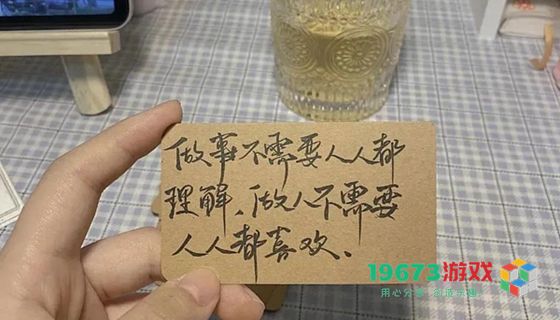 做事不需要人人都
理解、做人不需要
人人都喜欢、
19673游戏